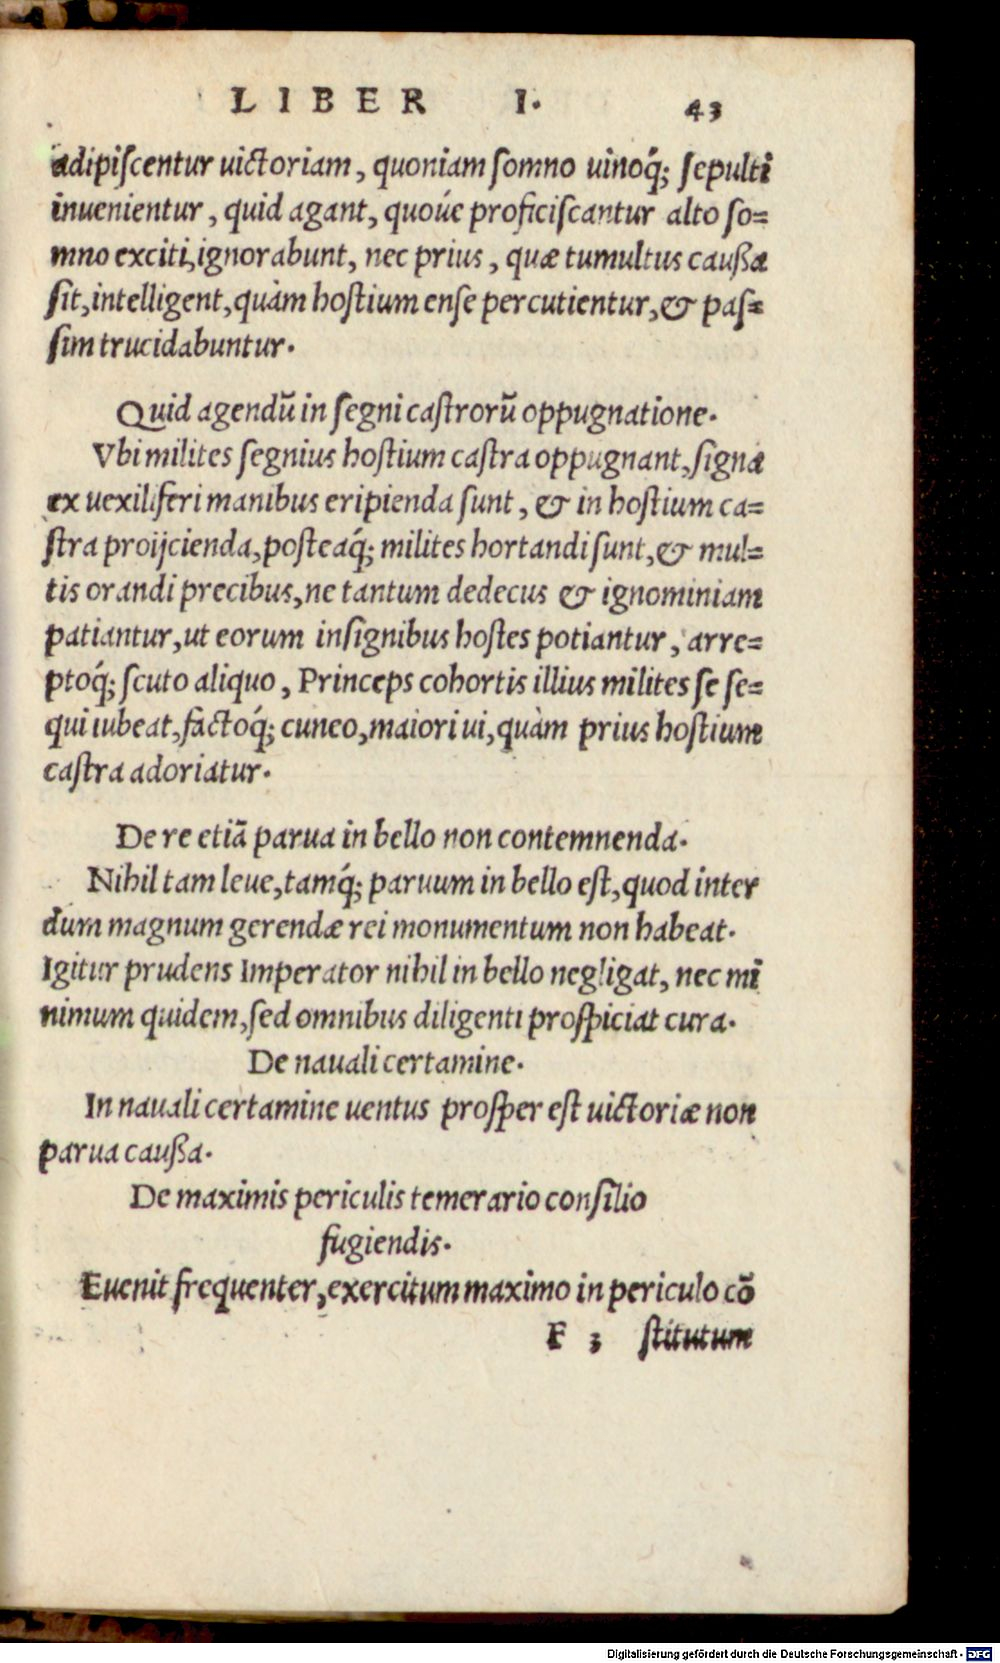 LIBER I. 43
adipiſcentur uictoriam, quoniam ſomno uinoq́; ſepulti
inuenientur, quid agant, quoúe proficiſcantur alto ſo=
mno exciti, ignorabunt, nec prius, quæ tumultus cauſſa
ſit, intelligent, quàm hoſtium enſe percutientur, & paſ=
ſim trucidabuntur.
Quid agendũ in ſegni caſtrorũ oppugnatione.
Vbi milites ſegnius hoſtium caſtra oppugnant, ſigna
ex uexiliferi manibus eripienda ſunt, & in hoſtium ca=
ſtra proijcienda, poſteaq́; milites hortandi ſunt, & mul=
tis orandi precibus, ne tantum dedecus & ignominiam
patiantur, ut eorum inſignibus hoſtes potiantur, arre=
ptoq́; ſcuto aliquo, Princeps cohortis illius milites ſe ſe=
qui iubeat, factoq́; cuneo, maiori ui, quàm prius hoſtium
caſtra adoriatur.
De re etiã parua in bello non contemnenda.
Nihil tam leue, tamq́; paruum in bello eſt, quod inter
dum magnum gerendæ rei monumentum non habeat.
Igitur prudens Imperator nihil in bello negligat, nec mi
nimum quidem, ſed omnibus diligenti proſpiciat cura.
De nauali certamine.
In nauali certamine uentus proſper eſt uictoriæ non
parua cauſſa.
De maximis periculis temerario conſilio
fugiendis.
Euenit frequenter, exercitum maximo in periculo cõ
F 3 ſtitutum
Digitalisierung gefördert durch die Deutsche Forschungsgemeinschaft - DFG